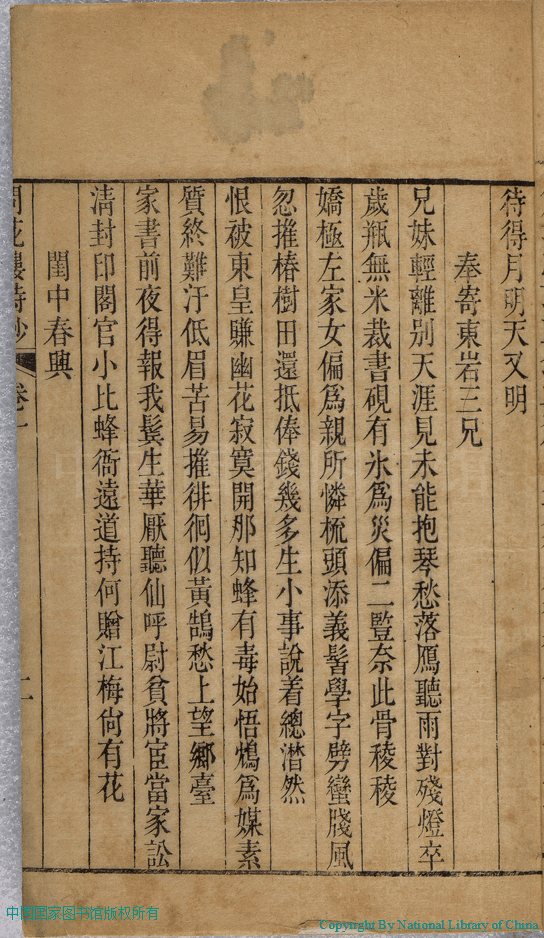 待得月明天又明
奉寄東岩三兄
兄妹輕離別天涯見未能抱琴愁落鴈聽雨對殘燈卒
歲瓶無米裁書硯有氷爲災偏二豎奈此骨稜稜
嬌極左家女偏爲親所憐梳頭添義髻學字劈蠻牋風
忽摧椿樹田還抵俸錢幾多生小事說着總潸然
恨被東皇賺幽花寂寞開那知蜂有毒始悟鴆爲媒素
質終難汙低眉苦易摧徘徊似黃鵠愁上望鄉臺
家書前夜得報我鬂生華厭聽仙呼尉貧將宦當家訟
淸封印閣官小比蜂衙遠道持何贈江梅尙有花
閨中春興
問花樓詩鈔 卷一 二
中國国家图书馆版权所有
Copyright By National Library of China